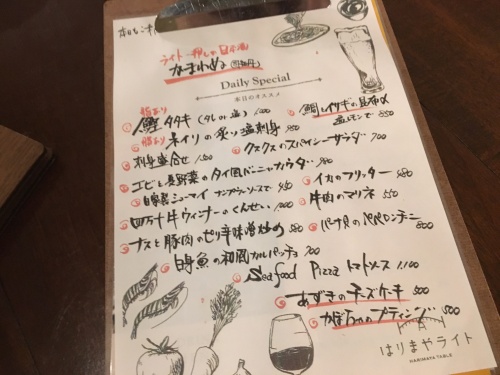 ライト 推しの日本酒
なまわぬる
Daily Special
本日のオススメ
脂あり
鰹タタキ (タレor塩) 1,000
鯛とイサギの昆布〆
塩レモンで 850
脂あり
ネイリの炙り塩刺身 850
刺身盛合せ 1,500
クスクスのスパイシーサラダ 700
エビと長野菜のタイ風バーニャカウダ 980
自家製シューマイ ナンプラーソースで 650
イカのフリッター 680
四万十牛ウィンナーのくんせい 1,000
牛肉のマリネ 550
ナスと豚肉のピリ辛味噌炒め 680
バナメイのペペロンチーニ 800
白身魚の和風カルパッチョ 700
Seafood Pizza トマトソース 1,100
あずきのチーズケーキ 500
かぼちゃのプティング 500
はりまやライト
HARIMAYA TABLE